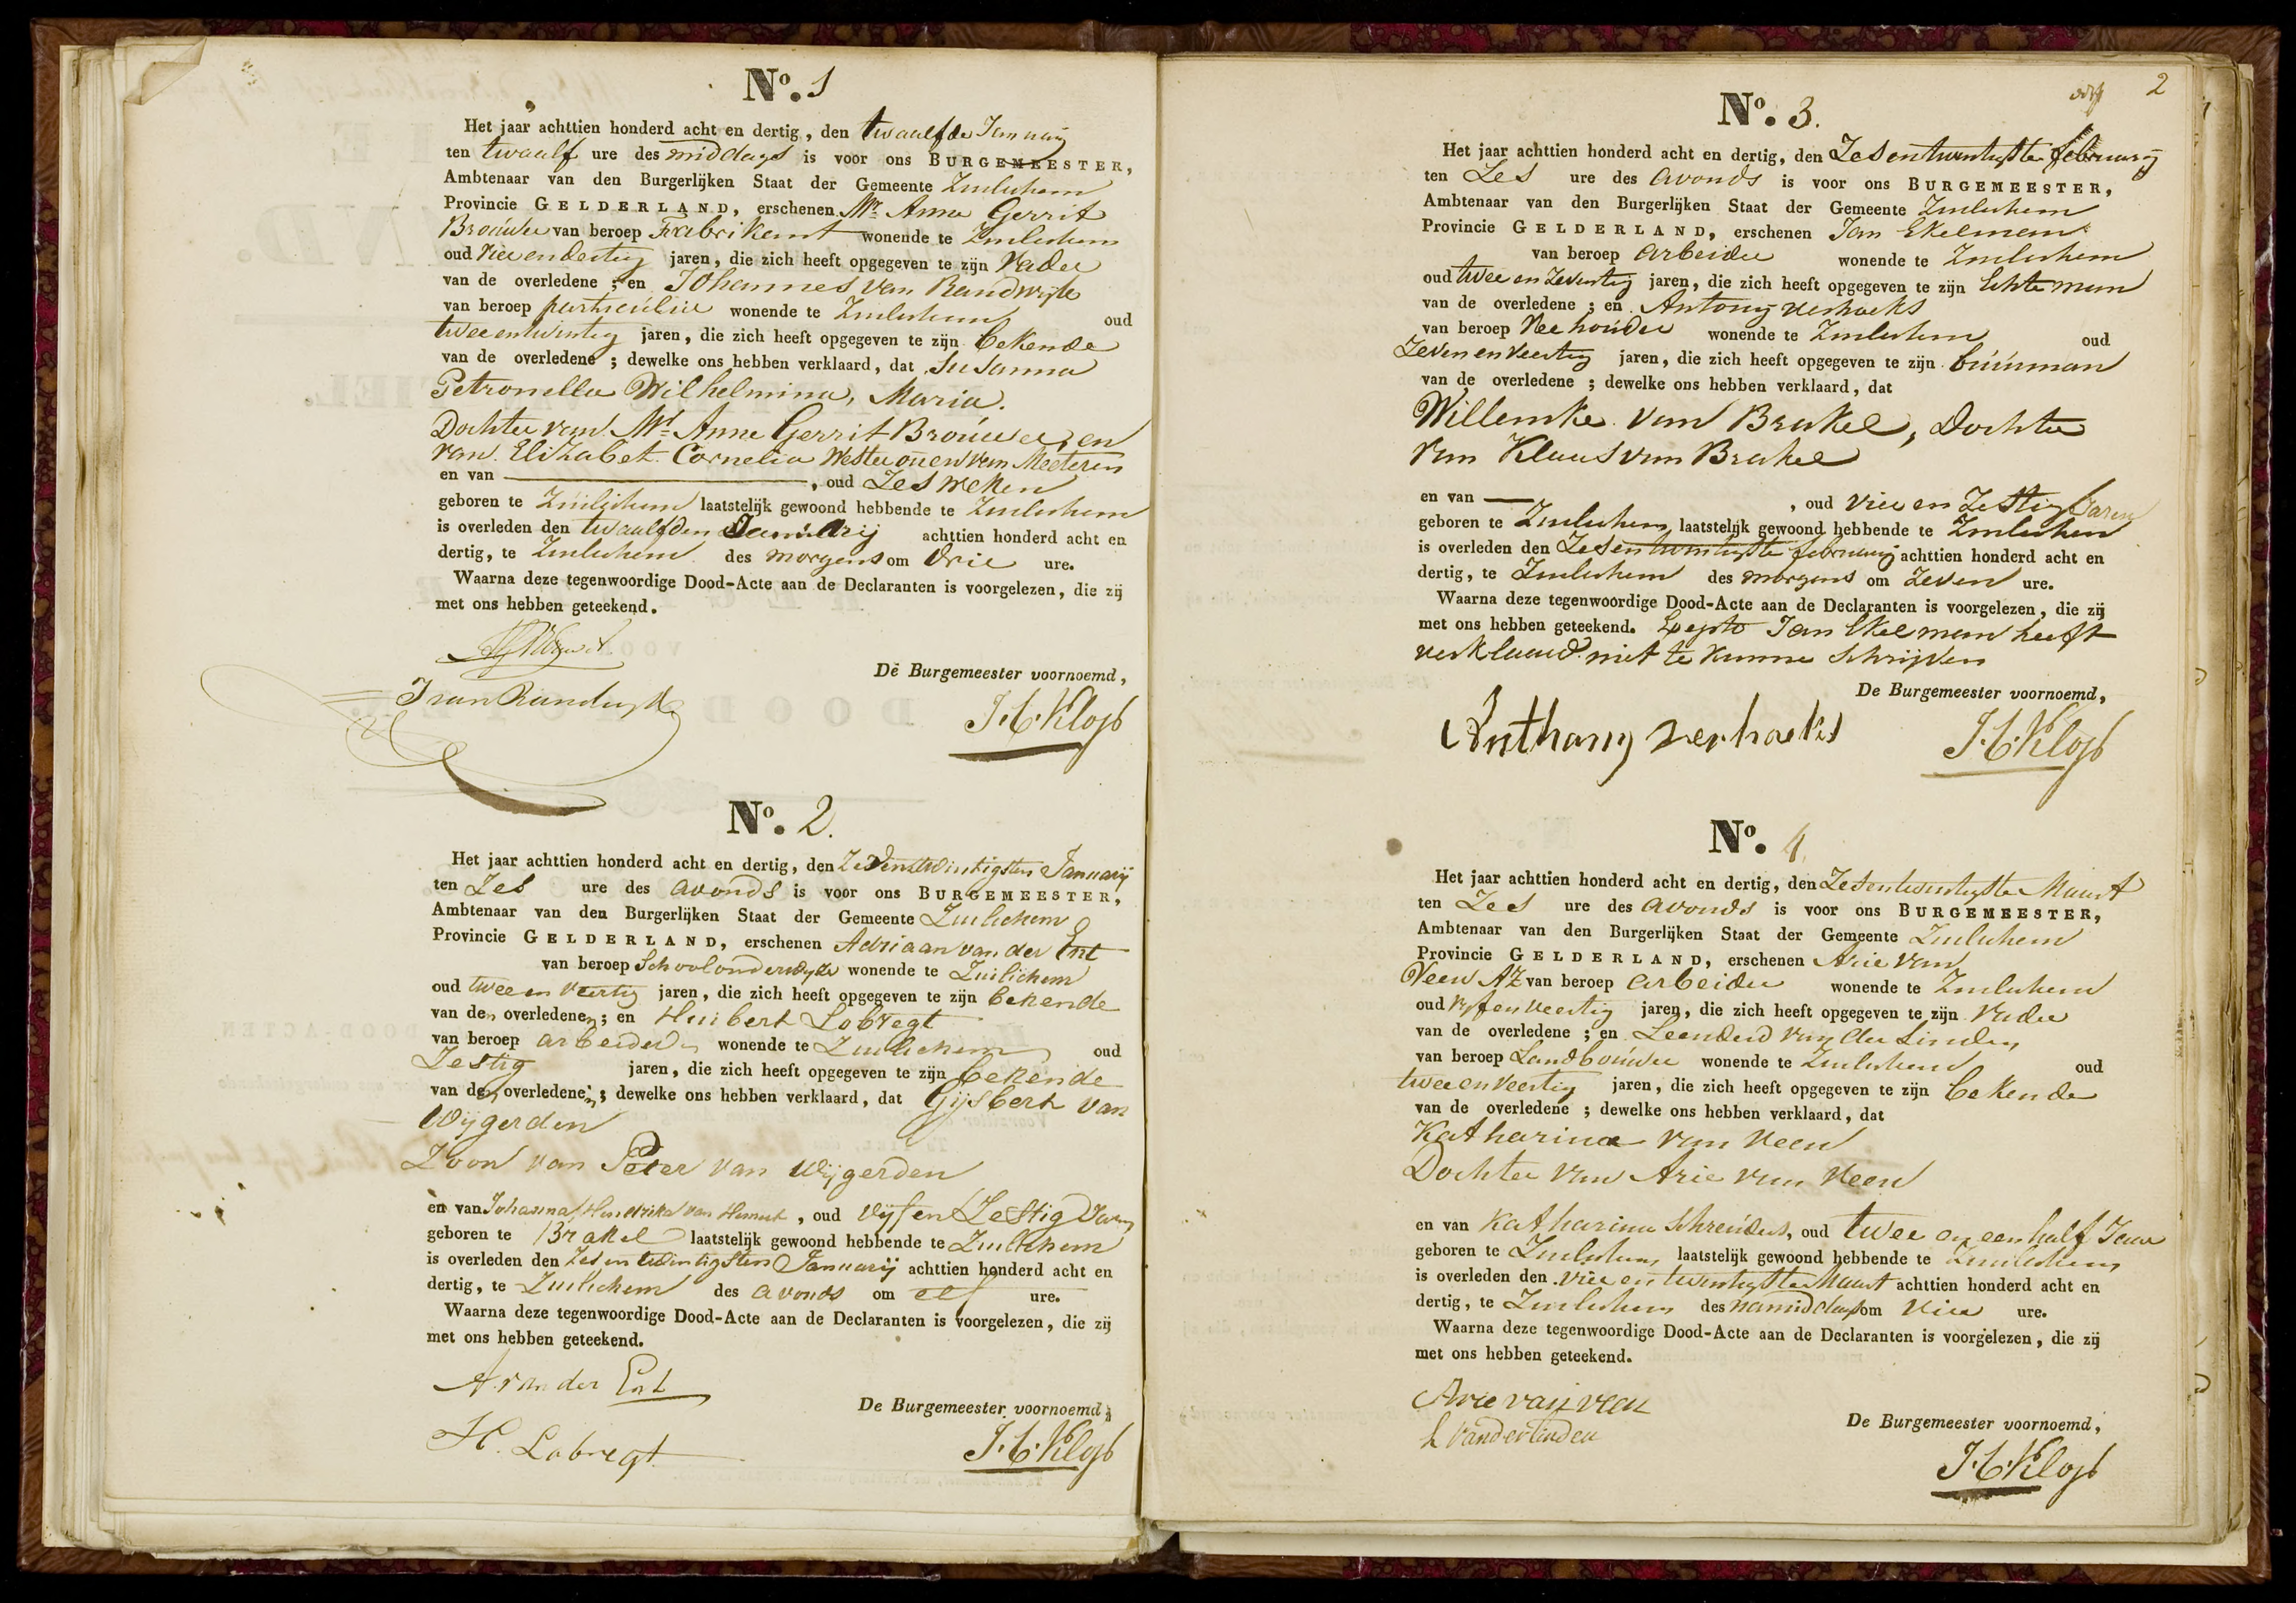 No. 1
Het jaar achttien honderd acht en dertig, den twaalfde Januarij
ten twaalf ure des middags is voor ons BURGEMEESTER,
Ambtenaar van den Burgerlijken Staat der Gemeente Zuilichem
Provincie GELDERLAND, erschenen Mr. Anne Gerrit
Brouwer van beroep Fabrikant wonende te Zuilichem
oud vier en dertig jaren, die zich heeft opgegeven te zijn Vader
van de overledene ; en Johannes van Randwijk
van beroep particulier wonende te Zuilichem oud
twee en twintig jaren, die zich heeft opgegeven te zijn bekende
van de overledene ; dewelke ons hebben verklaard, dat Susanna
Petronella Wilhelmina, Maria.
Dochter van Mr. Anne Gerrit Brouwer, en
van Elizabet Cornelia van Meeteren
en van , oud Zes weken
geboren te Zuilichem laatstelijk gewoond hebbende te Zuilichem
is overleden den twaalfden Januarij achttien honderd acht en
dertig, te Zuilichem des morgens om drie ure.
Waarna deze tegenwoordige Dood-Acte aan de Declaranten is voorgelezen, die zij
met ons hebben geteekend.
De Burgemeester voornoemd,
J van Randwijk
No. 2.
Het jaar achttien honderd acht en dertig, den Zevenentwintigsten Januarij
ten Zes ure des avonds is voor ons BURGEMEESTER,
Ambtenaar van den Burgerlijken Staat der Gemeente Zuilichem
Provincie GELDERLAND, erschenen Adriaan van der Ent
van beroep Schoolonderwijzer wonende te Zuilichem
oud twee en veertig jaren, die zich heeft opgegeven te zijn bekende
van den overledenen ; en Huibert Lobregt
van beroep arbeider wonende te Zuilichem oud
Zestig jaren, die zich heeft opgegeven te zijn bekende
van den overledenen ; dewelke ons hebben verklaard, dat Gijsbert van
Wijgerden
Zoon van Peter van Wijgerden
en van Johanna Hendrika van Hemert, oud vijf en Zestig Jaren
geboren te Brakel laatstelijk gewoond hebbende te Zuilichem
is overleden den Zes en twintigsten Januarij achttien honderd acht en
dertig, te Zuilichem des avonds om elf ure.
Waarna deze tegenwoordige Dood-Acte aan de Declaranten is voorgelezen, die zij
met ons hebben geteekend.
A. van der Ent
De Burgemeester voornoemd,
H. Lobregt
2
No. 3.
Het jaar achttien honderd acht en dertig, den Zesentwintigste februarij
ten Zes ure des avonds is voor ons BURGEMEESTER,
Ambtenaar van den Burgerlijken Staat der Gemeente Zuilichem
Provincie GELDERLAND, erschenen Jan Ekelman
van beroep arbeider wonende te Zuilichem
oud twee en Zeventig jaren, die zich heeft opgegeven te zijn Echteman
van de overledene ; en Antony verhoeks
van beroep Veehouder wonende te Zuilichem oud
Zeven en veertig jaren, die zich heeft opgegeven te zijn buurman
van de overledene ; dewelke ons hebben verklaard, dat
Willemke van Brakel, Dochter
van Klaas van Brakel
en van , oud vier en Zestig Jaren
geboren te Zuilichem laatstelijk gewoond hebbende te Zuilichem
is overleden den Zesentwintigste februarij achttien honderd acht en
dertig, te Zuilichem des morgens om Zeven ure.
Waarna deze tegenwoordige Dood-Acte aan de Declaranten is voorgelezen, die zij
met ons hebben geteekend. Jan Ekelman heeft
verklaard niet te kunne schrijven
De Burgemeester voornoemd,
Anthony verhoeks
No. 4
Het jaar achttien honderd acht en dertig, den Zesentwintigste Maart
ten Zes ure des avonds is voor ons BURGEMEESTER,
Ambtenaar van den Burgerlijken Staat der Gemeente Zuilichem
Provincie GELDERLAND, erschenen Arie van
Veen AZ van beroep arbeider wonende te Zuilichem
oud vyf en veertig jaren, die zich heeft opgegeven te zijn Vader
van de overledene ; en Leenderd van der Linden
van beroep Landbouwer wonende te Zuilichem oud
twee en veertig jaren, die zich heeft opgegeven te zijn bekende
van de overledene ; dewelke ons hebben verklaard, dat
Katharina van Veen
Dochter van Arie van Veen
en van Katharina Schreuders, oud twee en een half Jaar
geboren te Zuilichem laatstelijk gewoond hebbende te Zuilichem
is overleden den vier en twintigste Maart achttien honderd acht en
dertig, te Zuilichem des namiddags om vier ure.
Waarna deze tegenwoordige Dood-Acte aan de Declaranten is voorgelezen, die zij
met ons hebben geteekend.
Arie van veen
L van der linden
De Burgemeester voornoemd,